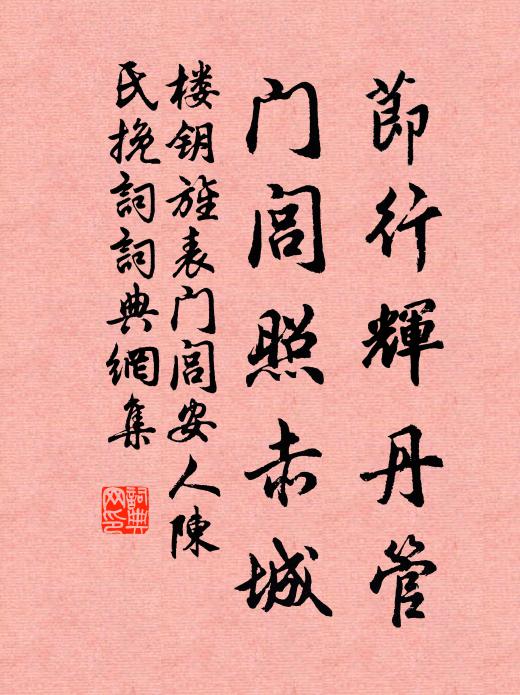 節行輝丹管
门闾照赤城
楼钥旌表门闾安人陳
氏挽詞詞典網集
詞典网印